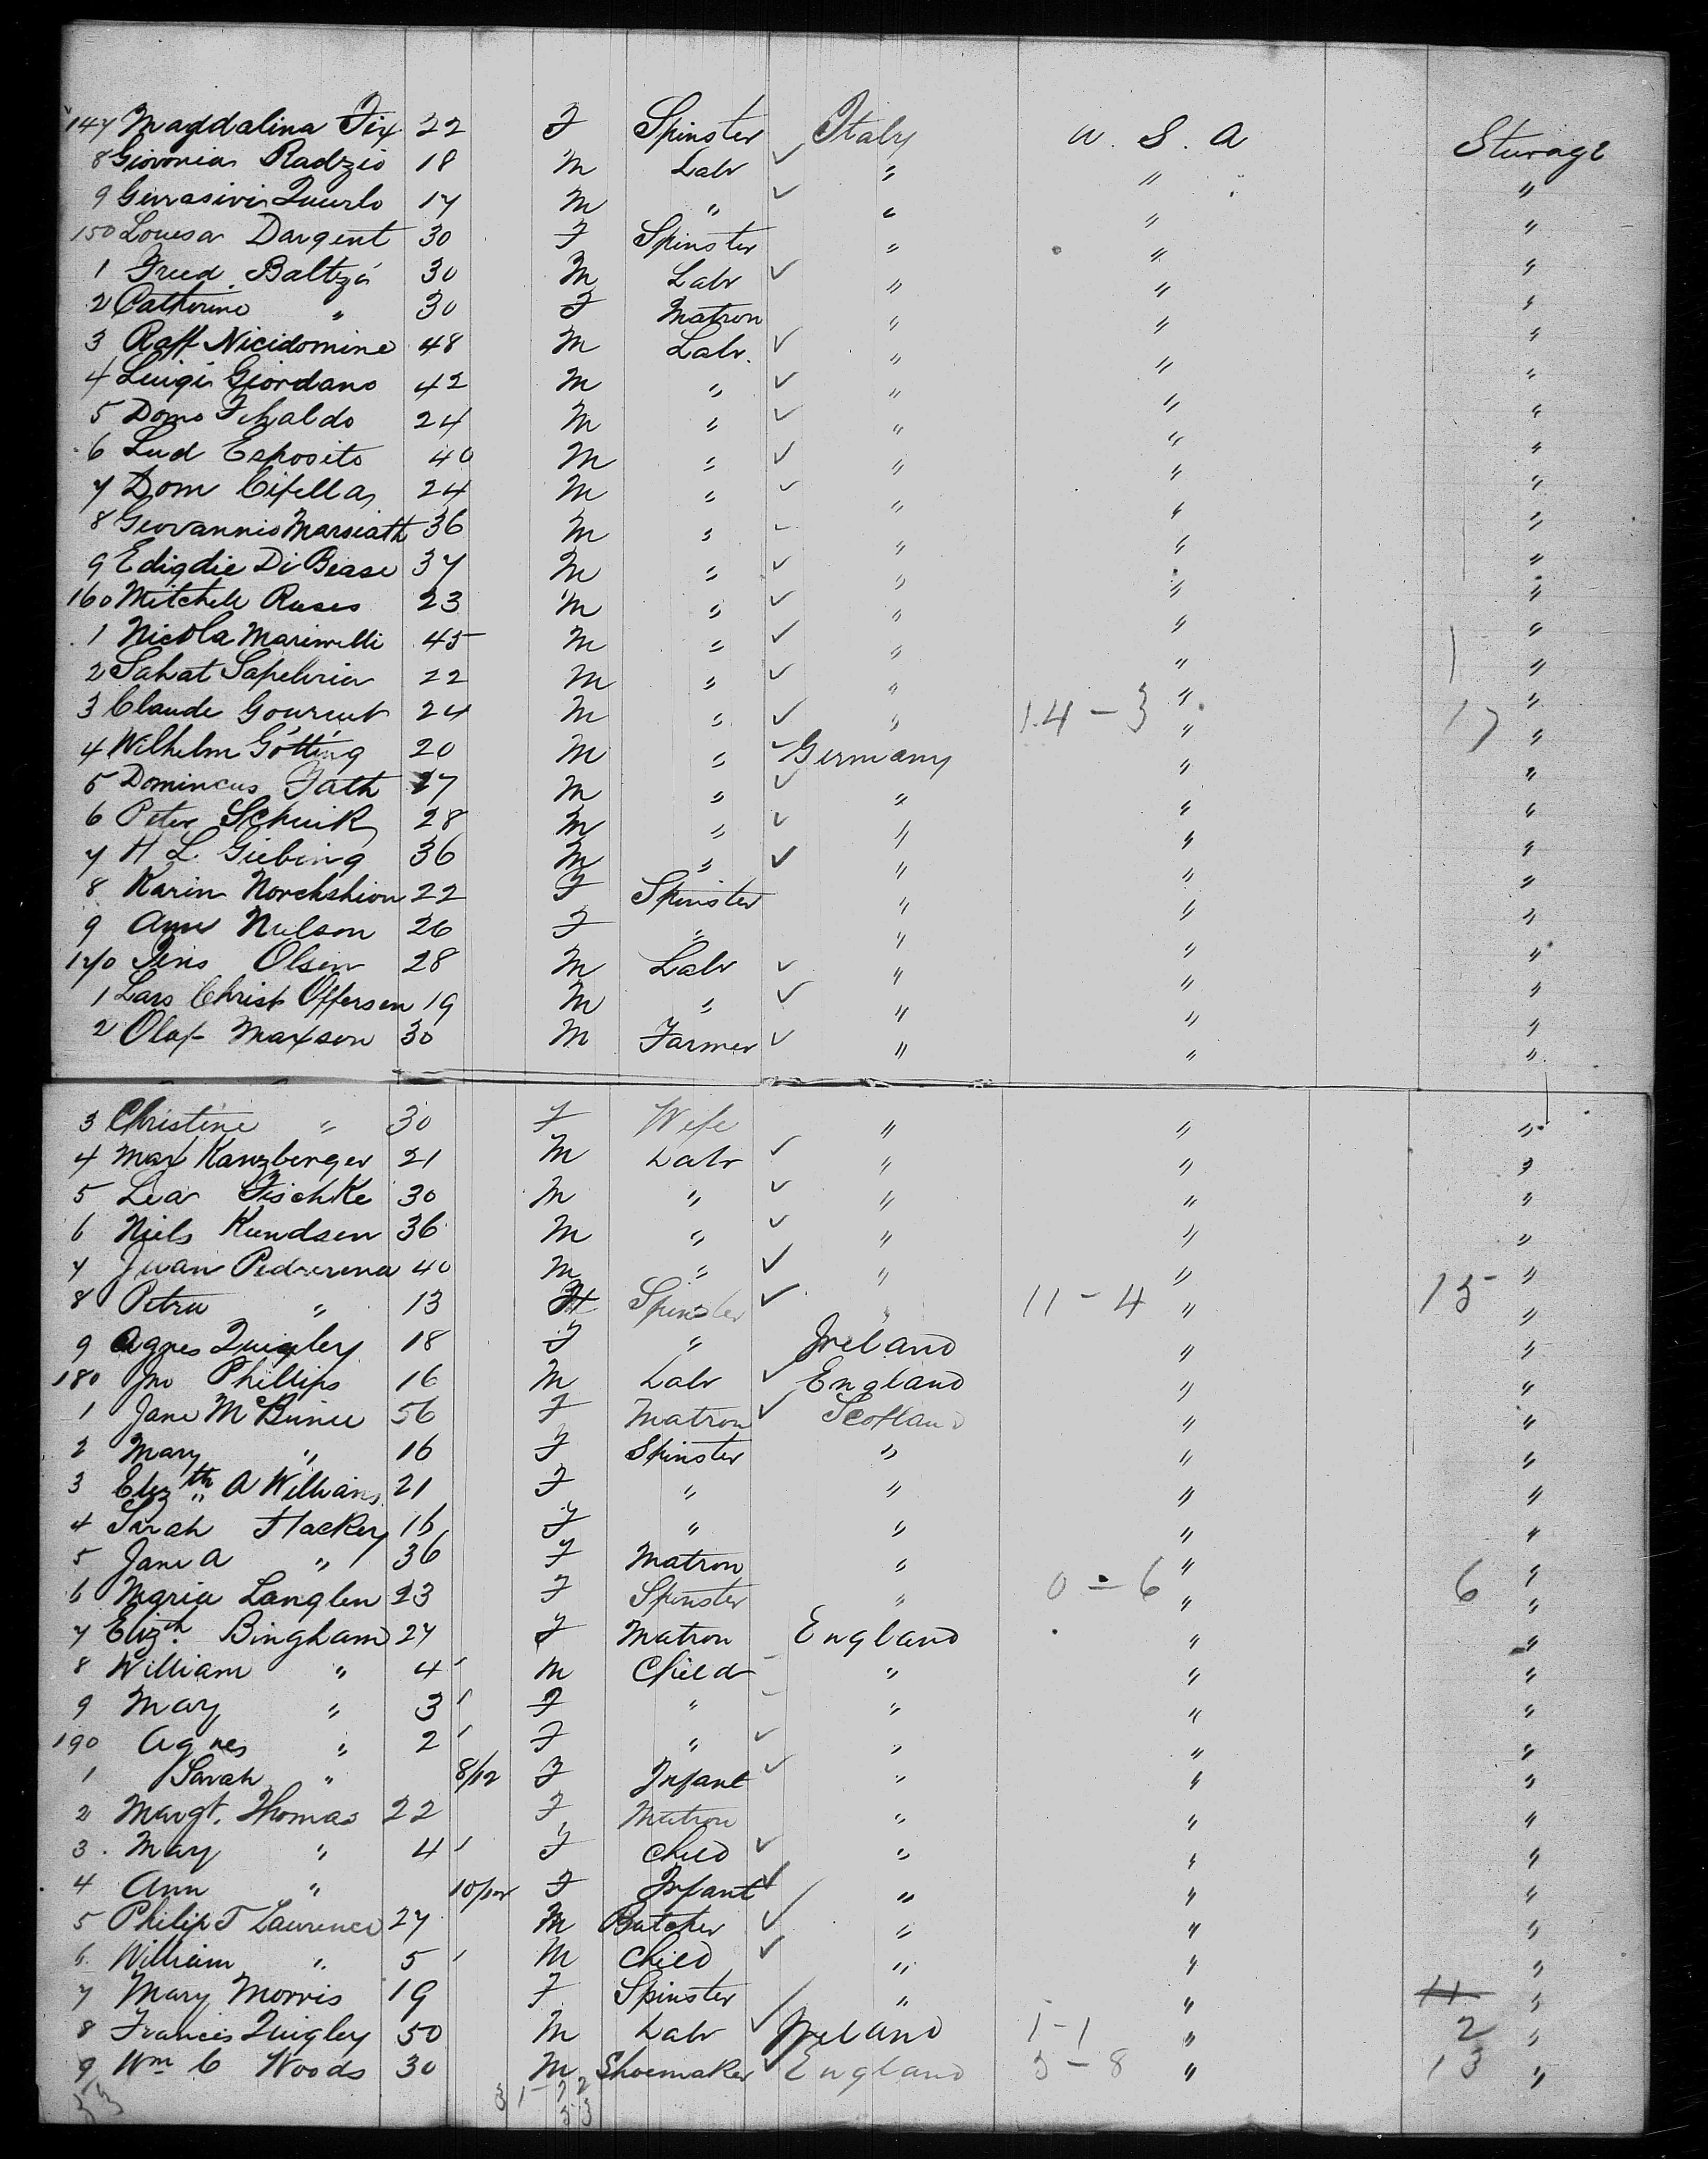 147 Magdalina Fix 22 F Spinster Italy U. S. A Sturage
8 Giovonia Radzio 18 M Labr ✓ " " "
9 17 M " ✓ " " "
150 Louisa Dargent 30 F Spinster " " "
1 Fred Baltzi 30 M Labr ✓ " " "
2 Catherine " 30 F Matron " " "
3 Raff Nicidomine 48 M Labr. ✓ " " "
4 Luigi Giordano 42 M " ✓ " " "
5 Domo 24 M " ✓ " " "
6 Lud Esposito 40 M " ✓ " " "
7 Dom Cifella 24 M " ✓ " " "
8 Geovannio 36 M " " " "
9 Edigdie Di Biase 37 M " ✓ " " "
160 Mitchell Ruses 23 M " ✓ " " "
1 Nicola Marinelli 45 M " ✓ " " "
2 22 M " ✓ " " "
3 Claude 24 M " ✓ " 14 - 3 " 17 "
4 Wilhelm Götting 20 M " ✓ Germany " "
5 Domincus Fath 27 M " ✓ " " "
6 Peter Schuik 28 M " ✓ " " "
7 H L Giebing 36 M " ✓ " " "
8 Karin 22 F Spinster " " "
9 Ann Nelson 26 F " " " "
170 Jens Olsen 28 M Labr ✓ " " "
1 Lars Christ Offersen 19 M " ✓ " " "
2 Olaf Maxson 30 M Farmer ✓ " " "
3 Christine " 30 F Wife " " "
4 Max Kanzberger 21 M Labr ✓ " " "
5 Lea Fischke 30 M " ✓ " " "
6 Niels Kundsen 36 M " ✓ " " "
7 Juan Pedrerena 40 M " ✓ " " "
8 Petra " 13 F Spinster ✓ " 11 - 4 " 15 "
9 Agnes Quigley 18 F " Ireland " "
180 Jno Phillips 16 M Labr ✓ England " "
1 Jane McBunie 56 F Matron ✓ Scotland " "
2 Mary " 16 F Spinster " " "
3 Elizth A Williams 21 F " " " "
4 Sarah Hackey 16 F " " " "
5 Jane A " 36 F Matron " " "
6 Maria Langlen 23 F Spinster " 0 - 6 " 6 "
7 Elizth. Bingham 27 F Matron England " "
8 William " 4 M Child " " "
9 May " 3 F " " " "
190 Agnes " 2 F " ✓ " " "
1 Sarah " 8/12 F Infant ✓ " " "
2 Margt. Thomas 22 F Matron " " "
3 May " 4 F Child ✓ " " "
4 Ann " 10/12 F Infant ✓ " " "
5 Philip T Laurence 27 M Butcher ✓ " " "
6 William " 5 M Child ✓ " " "
7 Mary Morris 19 F Spinster " " 11 "
8 Francis Quigley 50 M Labr ✓ Ireland 1 - 1 " 2 "
9 Wm C Woods 30 M Shoemaker ✓ England 5 - 8 " 13 "
53 31 - 22
53